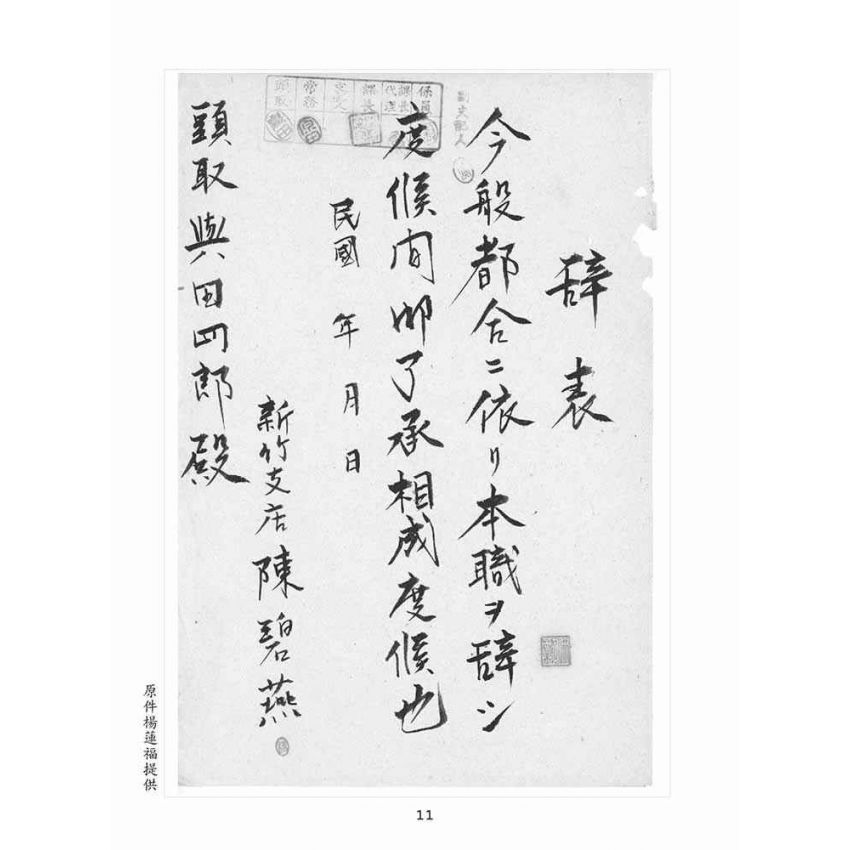 辞表
今般都合ニ依リ本職ヲ辞シ
度候間御了承相成度候也
民國 年 月 日
新竹支店 陳碧燕
頭取與田四郎殿
係員
課長代理
課長
支配人
常務
頭取
原件楊蓮福提供
11